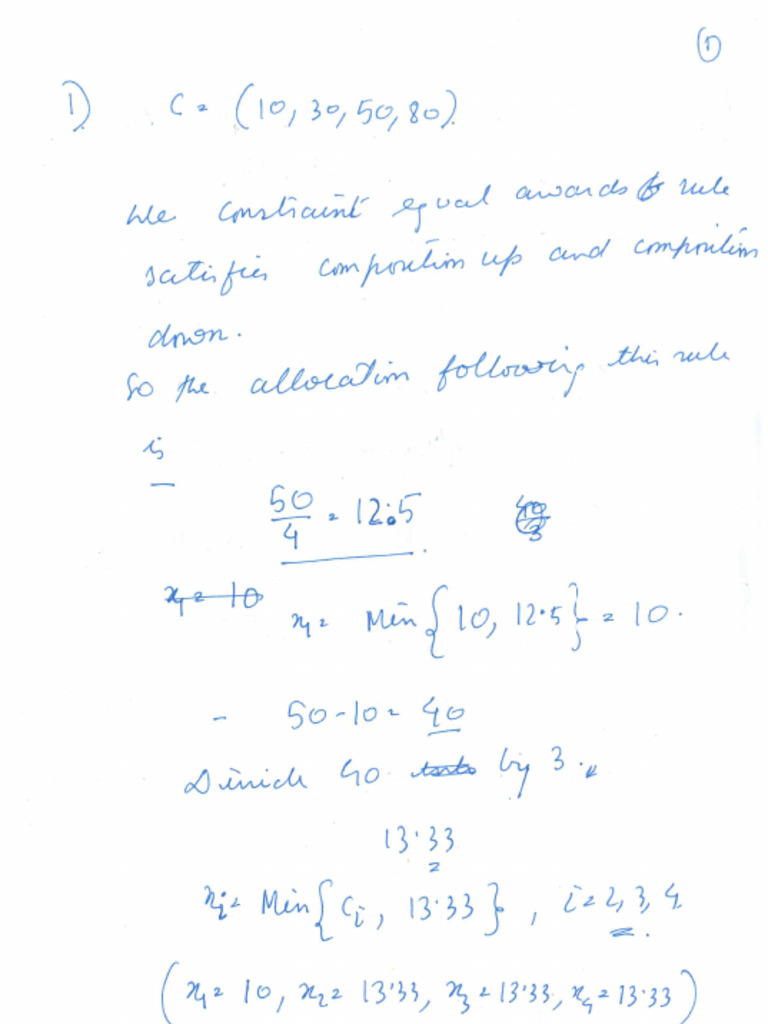 ①
1) C = (10, 30, 50, 80).
The constraint equal awards rule
satisfies composition up and composition
down.
So the allocation following this rule
is
50/4 = 12.5
x₁ = 10
x₁ = Min { 10, 12.5 } = 10.
- 50-10 = 40
Divide 40 by 3.
13.33
xᵢ = Min { Cᵢ, 13.33 } , i = 2, 3, 4.
(x₁ = 10, x₂ = 13.33, x₃ = 13.33, x₄ = 13.33)